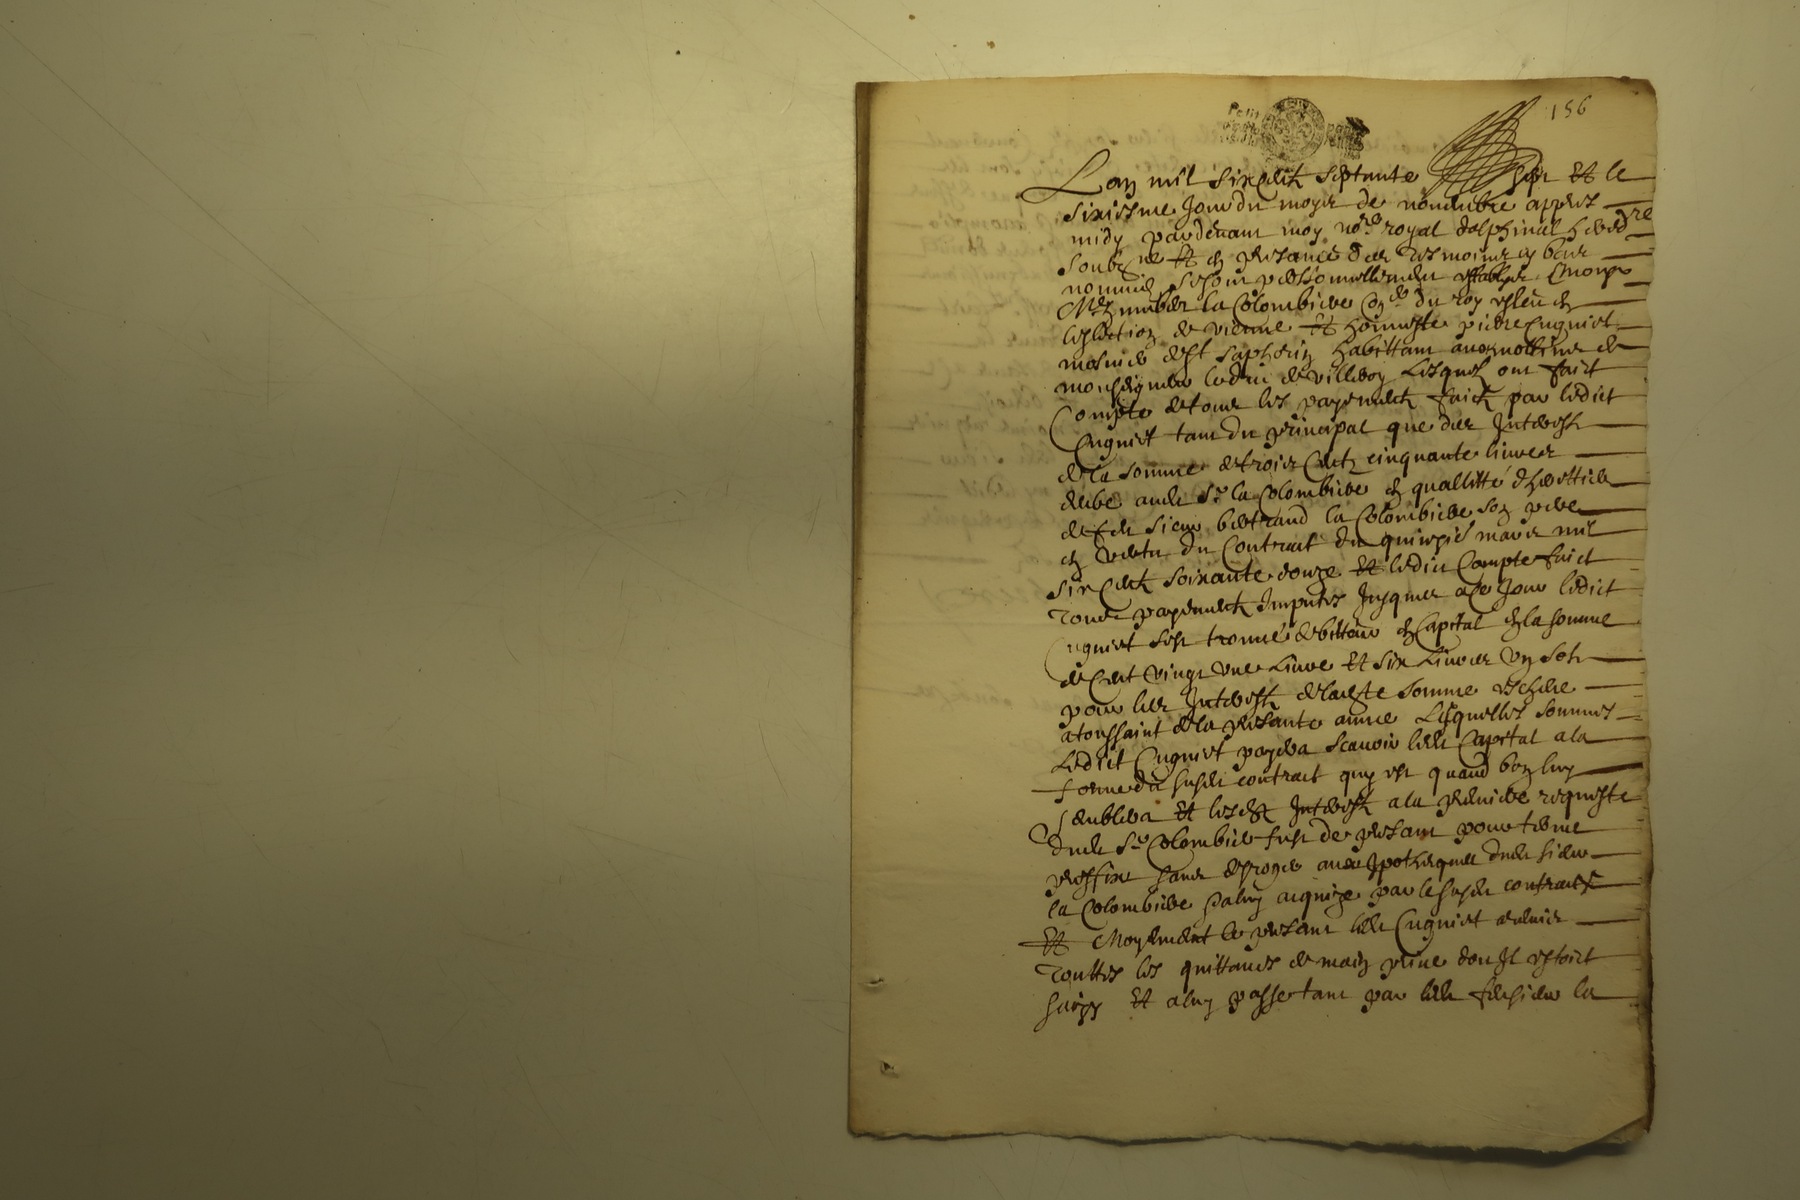 156
Petit
Lan mil six centz septante sept et le
sixiesme jour du moys de novembre appres
midy pardevant moy nore royal dalphinal hered.re
soubz.ne et en presance des tesmoins cy bas
nommés se sont personnellement establys
la Colombiere con.er du roy esleu en
leslection de vienne et honneste pierre Cugniet
mosnier de St saphorin habittant aux mollines de
monseigneur le duc de villeroy lesquels ont faict
Compte de tous les payementz faictz par ledict
Cugniet tant du principal que des Interestz
de la somme de trois centz cinquante livres
deube audt Sr la Colombiere en quallitté dherittier
de feu sieur bertrand la Colombiere son pere
en vertu du Contract du quinze mars mil
six centz soixante douze et ledict Compte faict
tous payementz Imputes jusques a ce jour ledict
Cugniet sest trouvé debitteur en Capital en la somme
de cent vingt une Livre et six Livres un solz
pour les Interestz de ladte somme escheue
a toussaint de la presante annee Lesquelles sommes
Ledict Cugniet payera scavoir ledt Capital a la
forme du susdt contract quy est quand bon luy
semblera et lesdtz Interestz a la premiere requeste
dudt Sr Colombiere fust de presant pour terme
preffix sans desroger aux Ipotheques dudt sieur
la Colombiere a luy acquize par le susdt contract
et Moyenent ce presant ledt Cugniet
touttes les quittances de main prive dont Il estoict
saizy et a luy passe tant par ledt feu sieur la